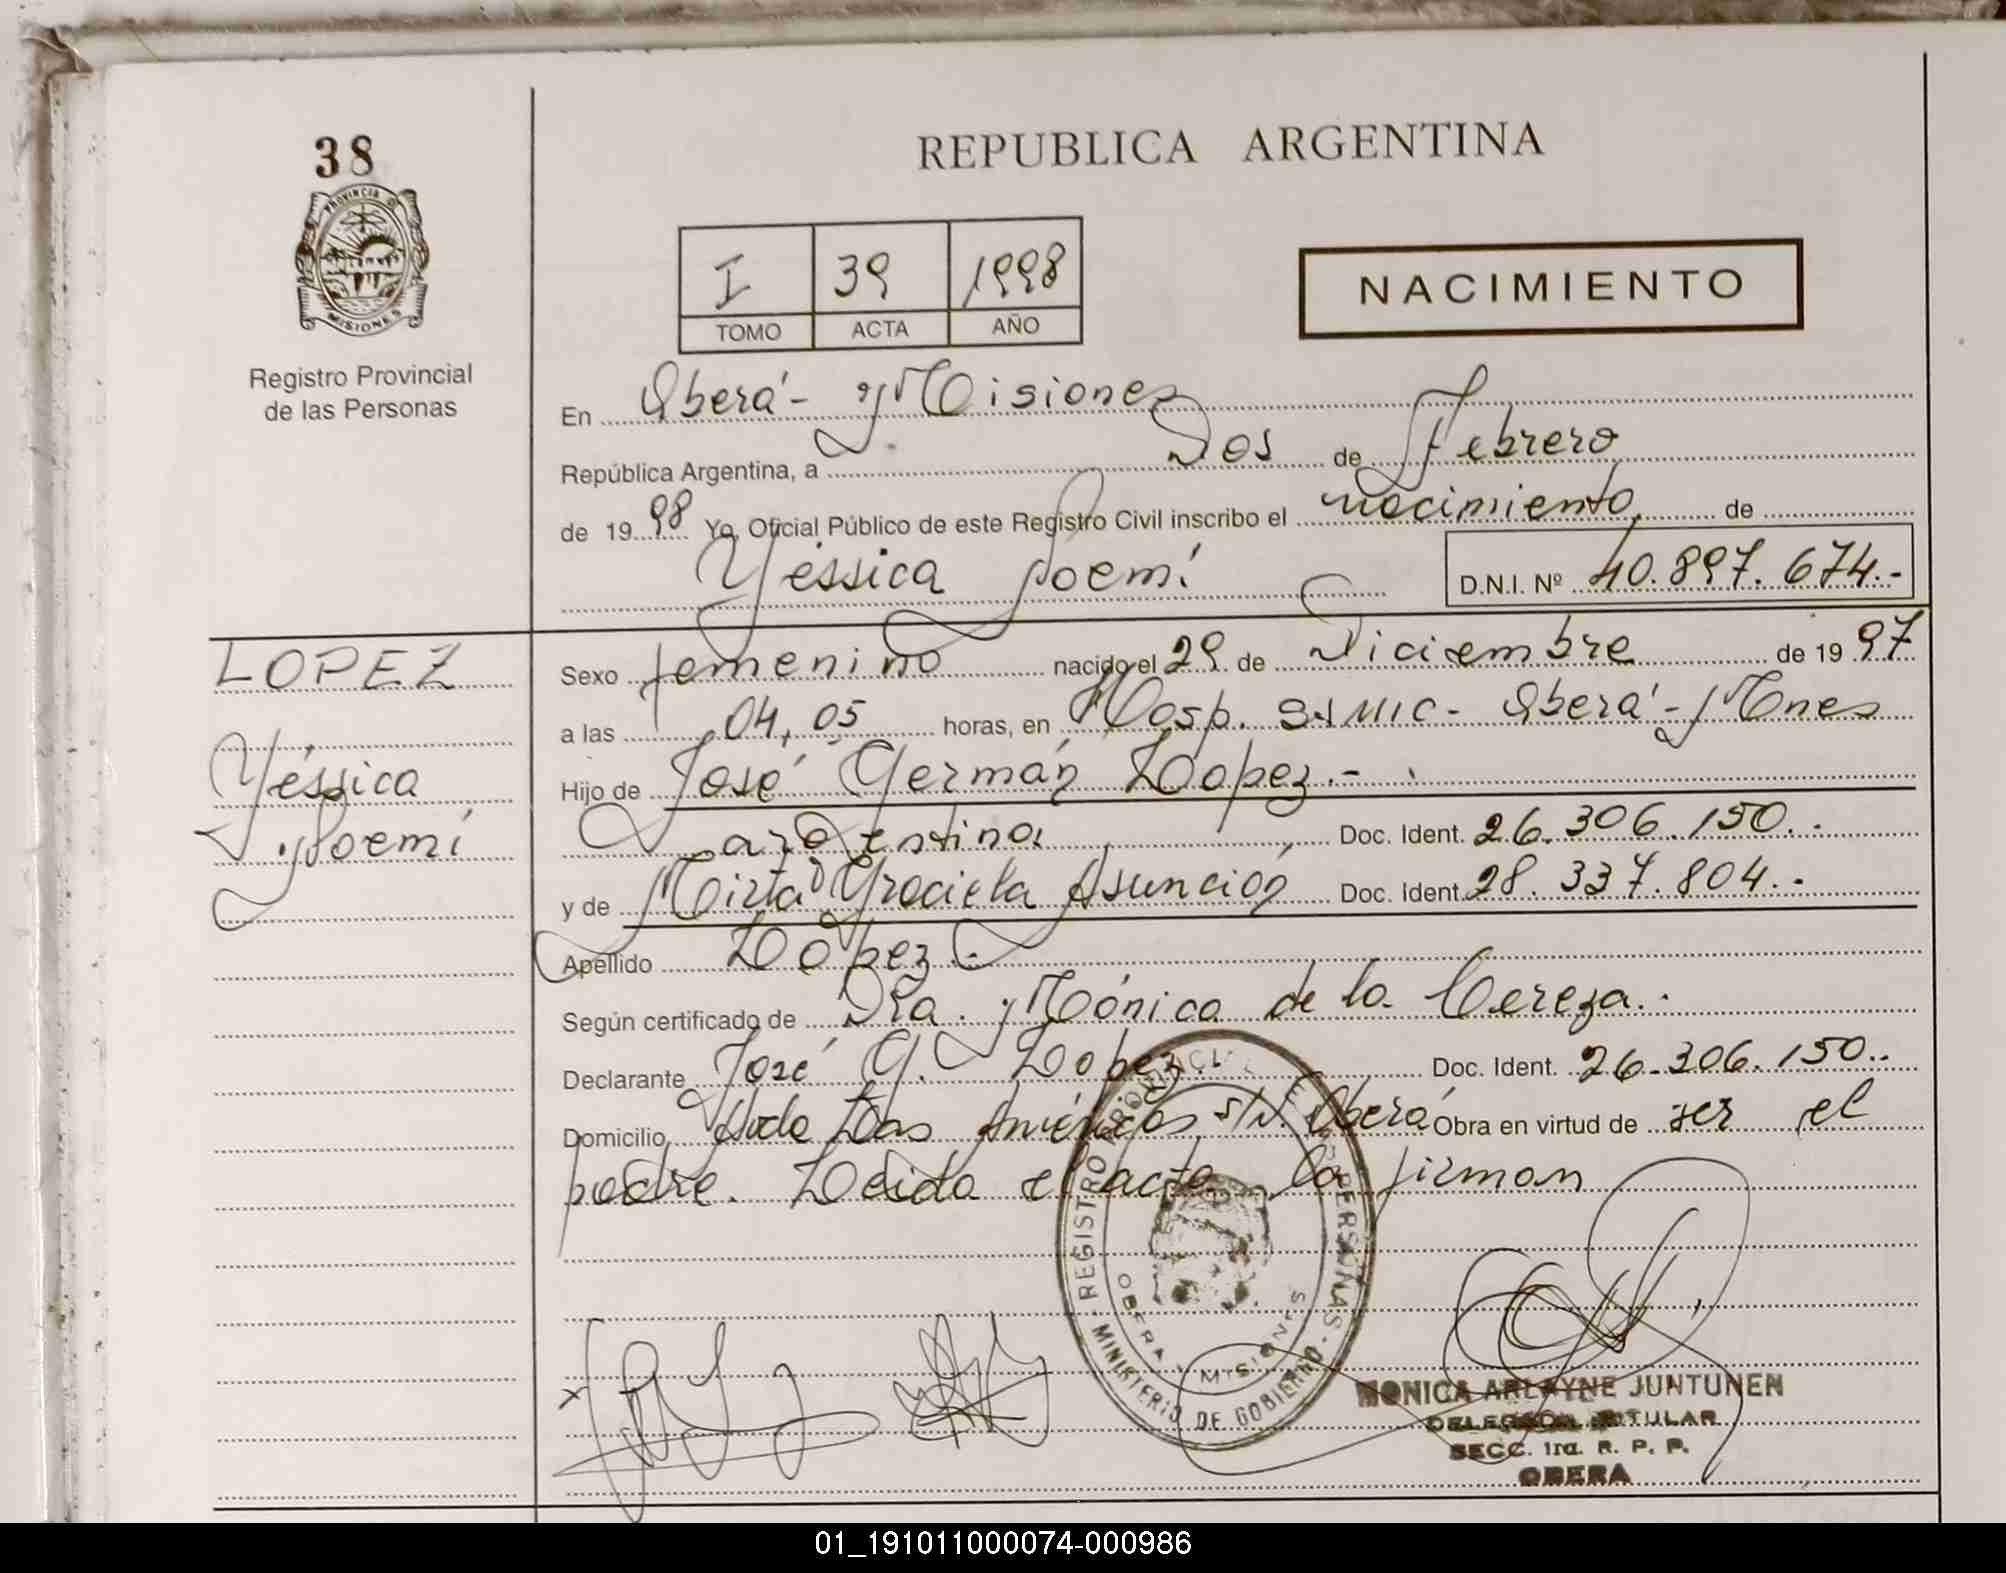 38
PROVINCIA DE
MISIONES
Registro Provincial
de las Personas
REPUBLICA ARGENTINA
I 39 1998
TOMO ACTA AÑO
NACIMIENTO
En Oberá - Misiones
República Argentina, a Dos de Febrero
de 1998 Yo, Oficial Público de este Registro Civil inscribo el nacimiento de
Yéssica Noemí D.N.I. Nº 40.897.674.-
LOPEZ
Yéssica
Noemí
Sexo femenino nacido el 29 de Diciembre de 1997
a las 04,05 horas, en Hosp. SAMIC - Oberá - Mnes
Hijo de José Germán Lopez.-
argentino. Doc. Ident. 26.306.150.-
y de Mirta Graciela Asunción Doc. Ident. 28.337.804.-
Apellido López.
Según certificado de Dra. Mónica de la Cereza.-
Declarante José G. Lopez Doc. Ident. 26.306.150..
Domicilio Avda Las Américas S/N. Oberá Obra en virtud de ser el
padre. Leida el acta la firman
REGISTRO PROVINCIAL DE LAS PERSONAS - MINISTERIO DE GOBIERNO -
OBERA MISIONES
MONICA ARLAYNE JUNTUNEN
DELEGADA TITULAR
SECC. 1ra. R. P. P.
OBERA
01_191011000074-000986